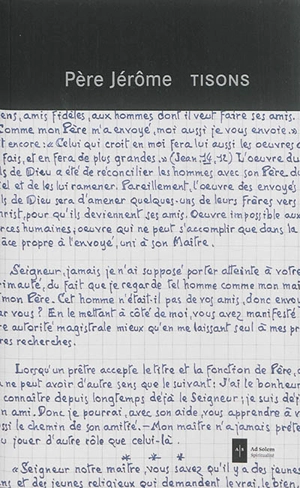 Père Jérôme TISONS
ens, amis fidèles, aux hommes dont il veut faire ses amis.
Comme mon Père m'a envoyé, moi aussi je vous envoie."
t encore: "Celui qui croit en moi fera lui aussi les oeuvres q
fais, et en fera de plus grandes." (Jean 14, 12) L'oeuvre du
ls de Dieu a été de réconcilier les hommes avec son Père du
iel et de les lui ramener. Pareillement, l'oeuvre des envoyés
ls de Dieu sera d'amener quelques-uns de leurs frères vers
hrist, pour qu'ils deviennent ses amis. Oeuvre impossible aux
rces humaines; oeuvre qui ne peut s'accomplir que dans la
âce propre à l'envoyé, uni à son Maître.
Seigneur, jamais je n'ai supposé porter atteinte à votre
rimauté, du fait que je regarde tel homme comme mon maî
mon Père. Cet homme n'était-il pas de vos amis, donc envoy
ar vous? En le mettant à côté de moi, vous avez manifesté
re autorité magistrale mieux qu'en me laissant seul à mes pr
res recherches.
Lorsqu'un prêtre accepte le titre et la fonction de Père, c
a ne peut avoir d'autre sens que le suivant: J'ai le bonheur
connaître depuis longtemps déjà le Seigneur; je suis déj
on ami. Donc je pourrai, avec son aide, vous apprendre à v
ussi le chemin de son amitié. - Mon maître n'a jamais préte
u jouer d'autre rôle que celui-là.
* * *
"Seigneur notre maître, vous savez qu'il y a des jeune
ens et des jeunes religieux qui demandent le vrai, le bien,
A S
Ad Solem
Spiritualité